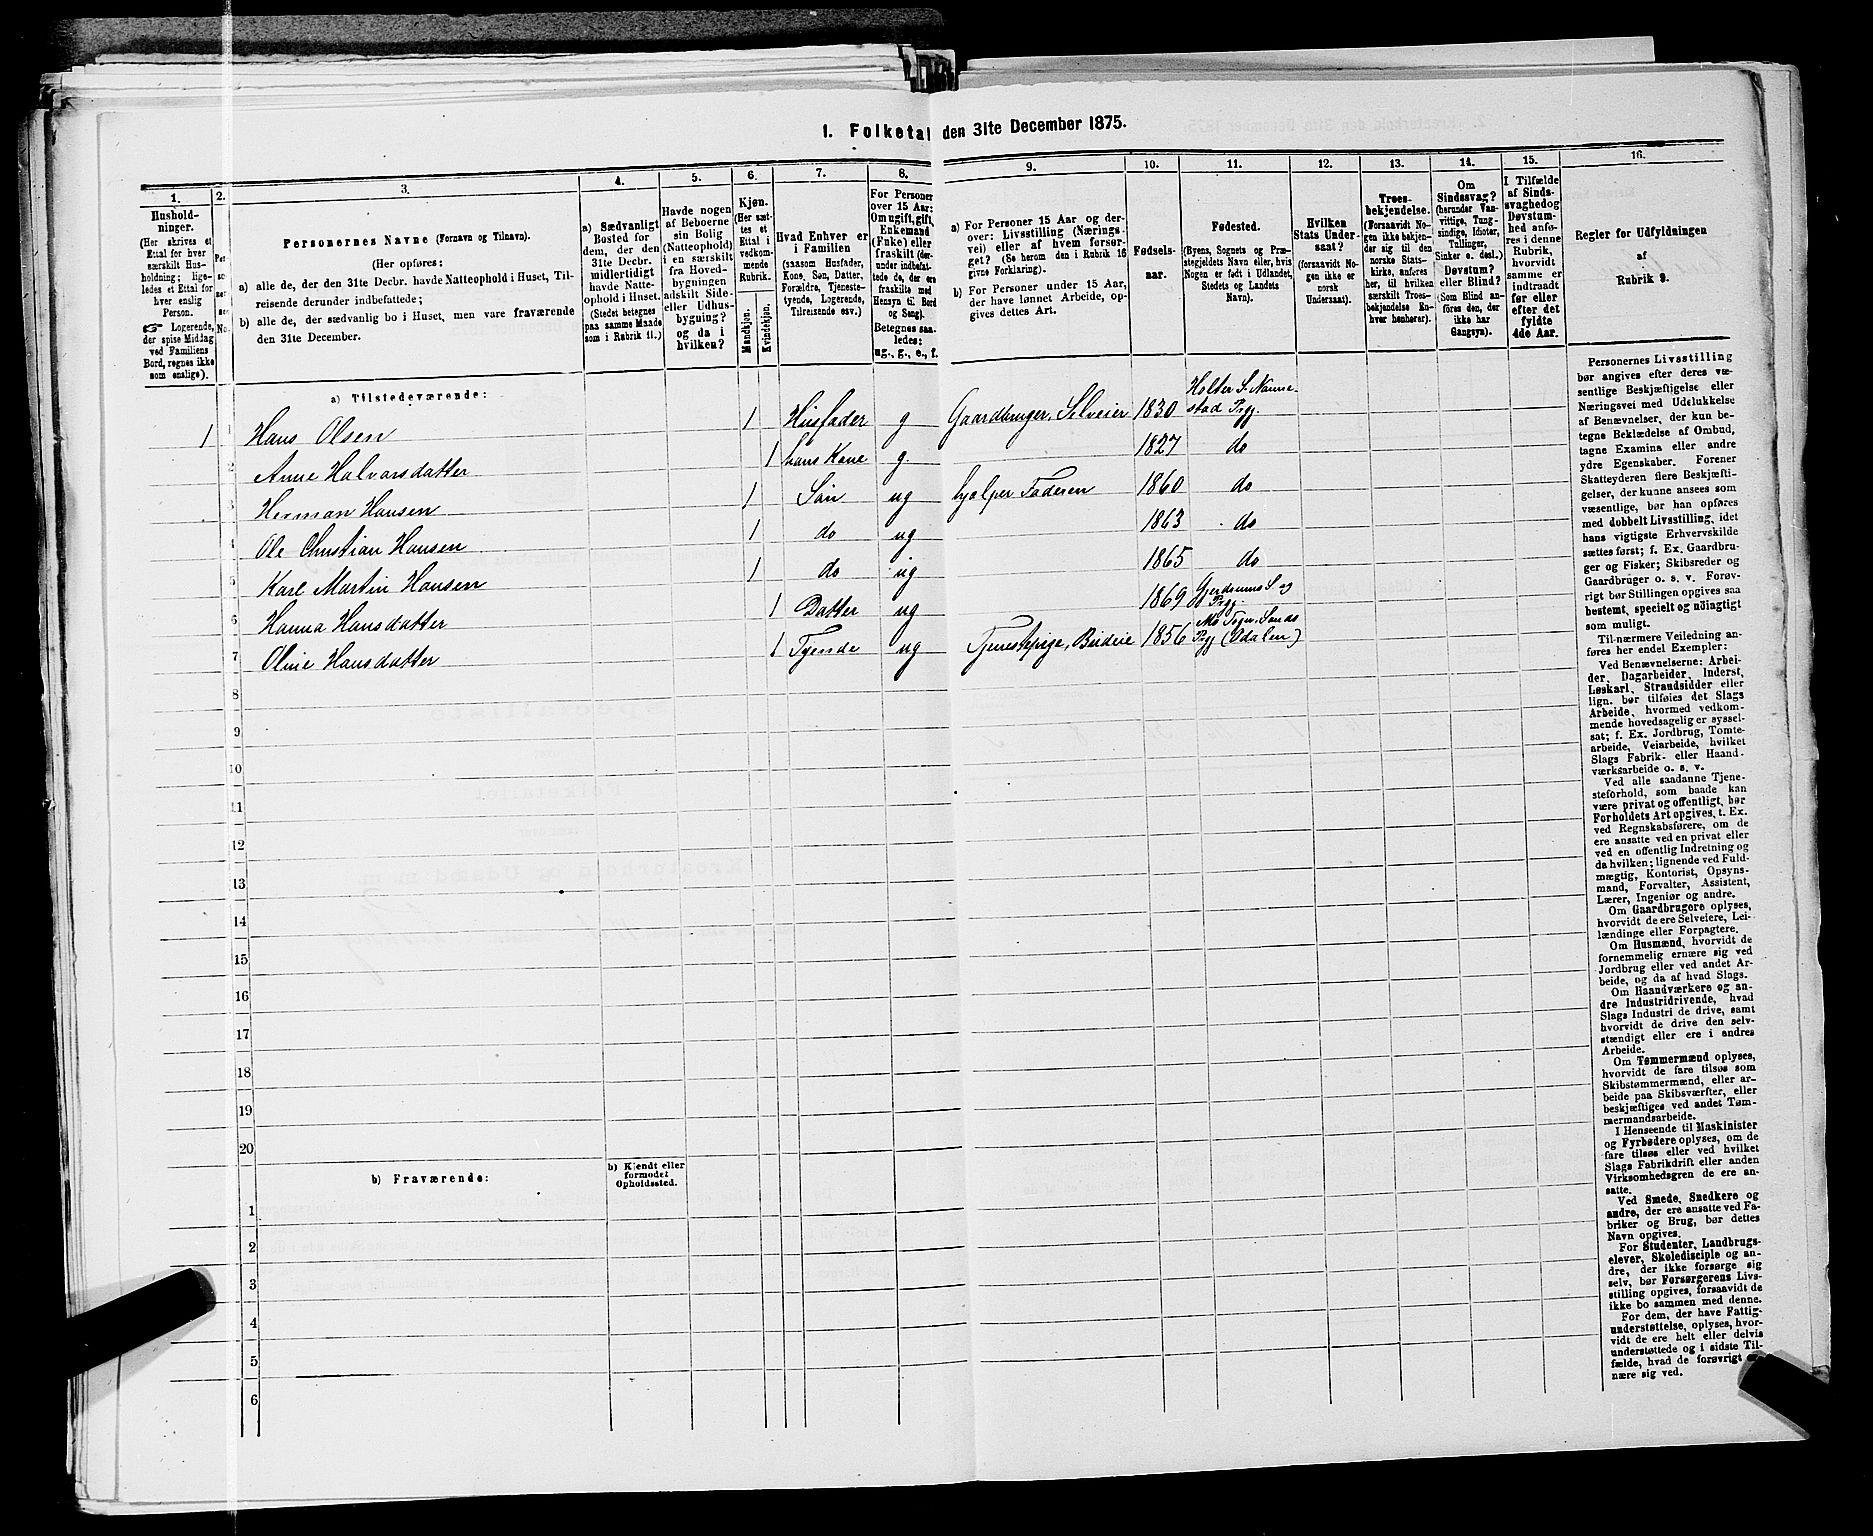 1. Folketal den 31te December 1875.
1. 2. 3. 4. 5. 6. 7. 8. 9. 10. 11. 12. 13. 14. 15. 16.
Hushold-
ninger.
(Her skrives et
Ettal for hver
særskilt Hus-
holdning; lige-
ledes et Ettal for
hver enslig
Person.
☞ Logerende,
der spise Middag
ved Familiens
Bord, regnes ikke
som enslige).
Per-
so-
ner-
nes
No.
Personernes Navne (Fornavn og Tilnavn).
(Her opføres:
a) alle de, der den 31te Decbr. havde Natteophold i Huset, Til-
reisende derunder indbefattede;
b) alle de, der sædvanlig bo i Huset, men vare fraværende
den 31te December.
a) Sædvanligt
Bosted for
dem, der den
31te Decbr.
midlertidigt
havde Natte-
ophold i Huset.
(Stedet betegnes
paa samme Maade
som i Rubrik 11.)
Havde nogen
af Beboerne
sin Bolig
(Natteophold)
i en særskilt
fra Hoved-
bygningen
adskilt Side-
eller Udhus-
bygning?
og da i
hvilken?
Kjøn.
(Her sæt-
tes et
Ettal i
vedkom-
mende
Rubrik.
Mandkjøn.
Kvindekjøn.
Hvad Enhver er
i Familien
(saasom Husfader,
Kone, Søn, Datter,
Forældre, Tjeneste-
tyende, Logerende,
Tilreisende osv.)
For Personer
over 15 Aar:
Om ugift, gift,
Enkemand
(Enke) eller
fraskilt
(der-
under indbefat-
tede de, der ere
fraskilte med
Hensyn til Bord
og Seng).
Betegnes saa-
ledes:
ug., g., e., f.
a) For Personer 15 Aar og der-
over: Livsstilling (Nærings-
vei) eller af hvem forsør-
get? (Se herom den i Rubrik 16
givne Forklaring).
b) For Personer under 15 Aar,
der have lønnet Arbeide, op-
gives dettes Art.
Fødsels-
aar.
Fødested.
(Byens, Sognets og Præ-
stegjeldets Navn eller, hvis
Nogen er født i Udlandet,
Stedets og Landets
Navn).
Hvilken
Stats Under-
saat?
(forsaavidt No-
gen ikke er
norsk
Undersaat).
Troes-
bekjendelse.
(Forsaavidt No-
gen ikke bekjen-
der sig til den
norske Stats-
kirke, anføres
her, til hvilken
særskilt Troes-
bekjendelse En-
hver henhører).
Om
Sindssvag?
(herunder Van-
vittige, Tung-
sindige, Idioter,
Tullinger,
Sinker o. desl.)
Døvstum?
eller Blind?
(Som Blind an-
føres den, der
ikke har
Gangsyn).
I Tilfælde
af Sinds-
svaghed og
Døvstum-
hed anfø-
res i denne
Rubrik,
hvorvidt
samme er
indtraadt
før eller
efter det
fyldte
4de Aar.
Regler for Udfyldningen
af
Rubrik 9.
a) Tilstedeværende:
1 1 Hans Olsen 1 Husfader g Gaardbruger, Selveier 1830 Holter S. Nanne-
stad Prgj.
2 Anne Halvorsdatter 1 hans Kone g. 1827 do
3 Herman Hansen 1 Søn ug hjælper Faderen 1860 do
4 Ole Christian Hansen 1 do ug 1863 do
5 Karl Martin Hansen 1 do ug 1865 do
6 Hanna Hansdatter 1 Datter ug 1869 Gjerdrums S. og
Prgj.
7 Oline Hansdatter 1 Tyende ug Tjenestepige, Budeie 1856 Mo Sogn, Sands
Prgj (Odalen)
8
9
10
11
12
13
14
15
16
17
18
19
20
b) Fraværende:
b) Kjendt eller
formodet
Opholdssted.
1
2
3
4
5
6
Personernes Livsstilling
bør angives efter deres væ-
sentlige Beskjæftigelse eller
Næringsvei med Udelukkelse
af Benævnelser, der kun be-
tegne Beklædelse af Ombud,
tagne Examina eller andre
ydre Egenskaber. Forener
Skatteyderen flere Beskjæfti-
gelser, der kunne ansees som
væsentlige, bør han opføres
med dobbelt Livsstilling, idet
hans vigtigste Erhvervskilde
sættes først; f. Ex. Gaardbru-
ger og Fisker; Skibsreder og
Gaardbruger o. s. v. Forøv-
rigt bør Stillingen opgives saa
bestemt, specielt og nøiagtigt
som muligt.
Til nærmere Veiledning an-
føres her endel Exempler:
Ved Benævnelserne: Arbei-
der, Dagarbeider, Inderst,
Løskarl, Strandsidder eller
lign. bør tilføies det Slags
Arbeide, hvormed vedkom-
mende hovedsagelig er syssel-
sat; f. Ex. Jordbrug, Tomte-
arbeide, Veiarbeide, hvilket
Slags Fabrik- eller Haand-
værksarbeide o. s. v.
Ved alle saadanne Tjene-
steforhold, som baade kan
være privat og offentligt, bør
Forholdets Art opgives, t. Ex.
ved Regnskabsførere, om de
ere ansatte ved en privat eller
ved en offentlig Indretning og
da hvilken; lignende ved Fuld-
mægtig, Kontorist, Opsyns-
mand, Forvalter, Assistent,
Lærer, Ingeniør og andre.
Om Gaardbrugere oplyses,
hvorvidt de ere Selveiere, Lei-
lændinge eller Forpagtere.
Om Husmænd, hvorvidt de
fornemmelig ernære sig ved
Jordbrug eller ved andet Ar-
beide, og da af hvad Slags.
Om Haandværkere og an-
dre Industridrivende, hvad
Slags Industri de drive, samt
hvorvidt de drive den selv-
stændigt eller ere i andres
Arbeide.
Om Tømmermænd oplyses,
hvorvidt de fare tilsøs som
Skibstømmermænd, eller ar-
beide paa Skibsværfter, eller
beskjæftiges ved andet Tøm-
mermandsarbeide.
I Henseende til Maskinister
og Fyrbødere oplyses, om de
fare tilsøs eller ved hvilket
Slags Fabrikdrift eller anden
Virksomhedsgren de ere an-
satte.
Ved Smede, Snedkere og
andre, der ere ansatte ved Fa-
briker og Brug, bør dettes
Navn opgives.
For Studenter, Landbrugs-
elever, Skoledisciple og an-
dre, der ikke forsørge sig
selv, bør Forsørgerens Livs-
stilling opgives, forsaavidt de
ikke bo sammen med denne.
For dem, der have Fattig-
understøttelse, oplyses, hvor-
vidt de ere helt eller delvis
understøttede og i sidste Til-
fælde, hvad de forøvrigt er-
nære sig ved.